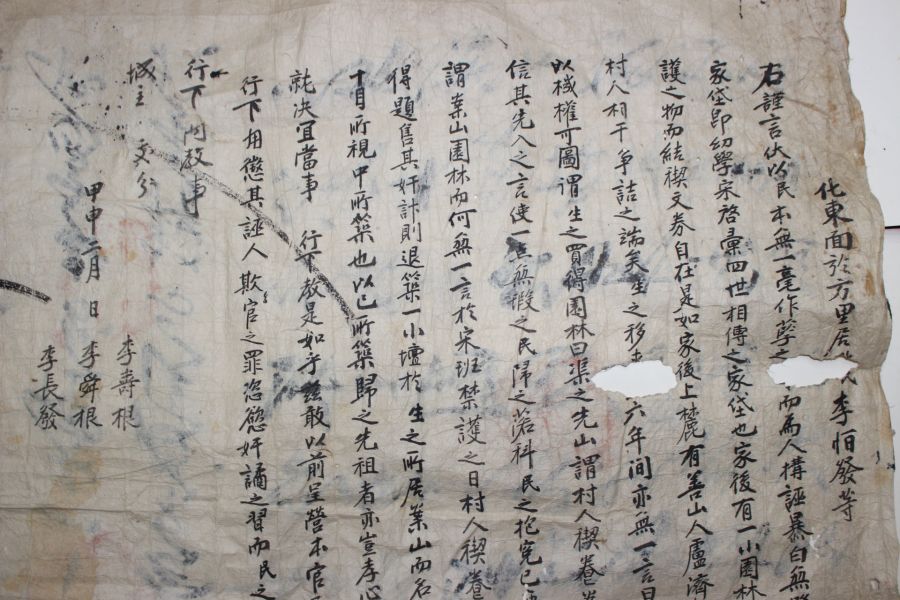 化東面於方里居 李怕發等
右謹言伏以民本無一毫作孼之 而爲人構誣暴白無
家垈卽幼學宋啓彙四世相傳之家垈也家後有一小園林
護之物而結稧文券自在是如家後上麓有善山人盧濟
村人相干爭詰之端矣生之移 六年間亦無一言
以械權可圖謂生之買得園林曰渠之先山謂村人稧卷
信其先入之言使一点無瑕之民歸之 科民之抱冤已
謂案山園林而何無一言於宋班禁護之日村人稧卷
得題售其奸計則退築一小壇於生之所居案山而名
十目所視中所築也以已所築歸之先祖者亦豈孝心
就决宜當事 行下敎是如乎玆敢以前呈營本官
行下用懲其誣人欺官之罪恣慾奸譎之習而民之
行下向敎事
城主 處分
甲申二月 日
李壽根
李舜根
李長發